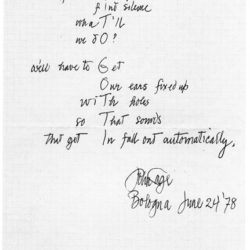 fInd silence
whaT'll
we dO?
we'll have to Get
Our ears fixed up
wiTh holes
so That sounds
that get In fall out automatically.
John Cage
Bologna June 24 '78